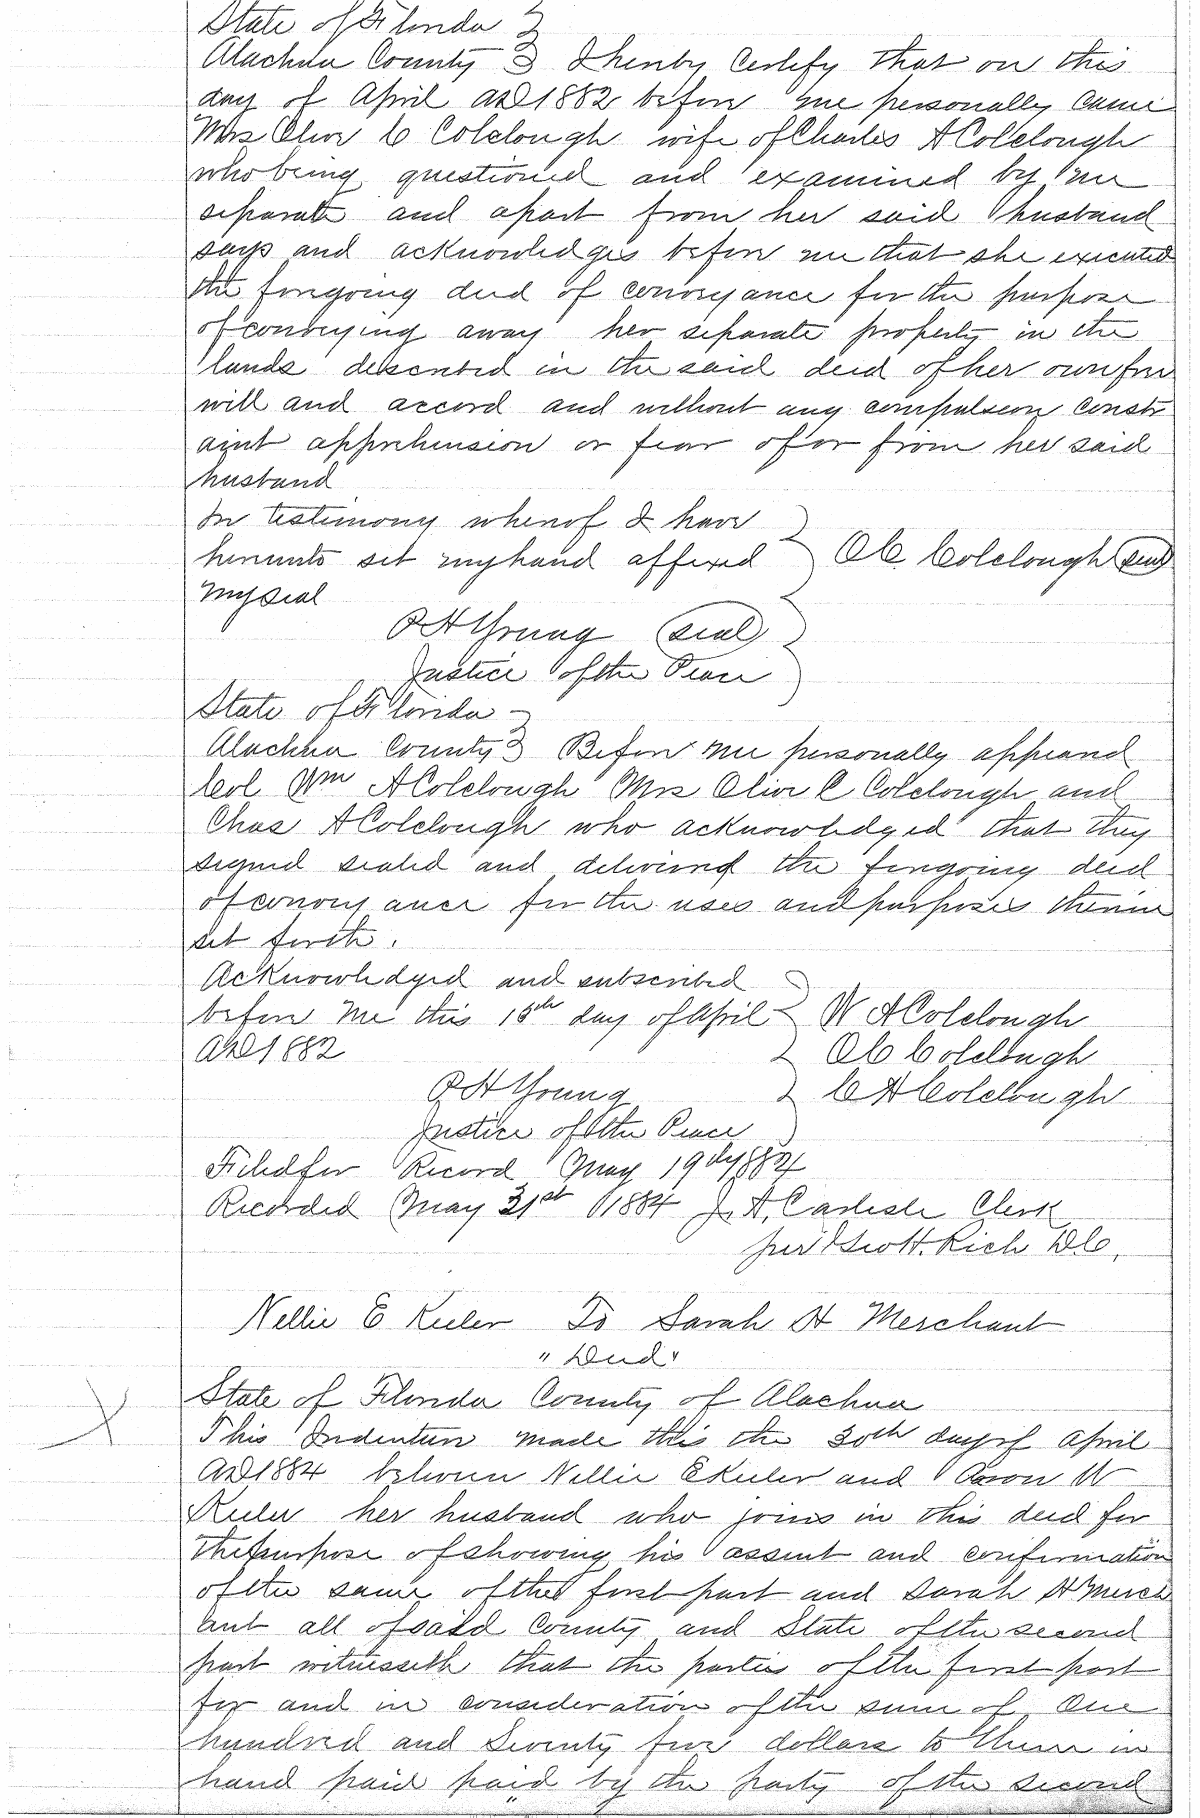 State of Florida }
Alachua County } I hereby certify that on this
day of April AD 1882 before me personally came
Mrs Olive C Colclough wife of Charles A Colclough
who being questioned and examined by me
separate and apart from her said husband
says and acknowledges before me that she executed
the foregoing deed of conveyance for the purpose
of conveying away her separate property in the
lands described in the said deed of her own free
will and accord and without any compulsion constr
aint apprehension or fear of or from her said
husband
In testimony whereof I have
hereunto set my hand affixed } O C Colclough (seal)
my seal
R H Young (seal)
Justice of the Peace
State of Florida }
Alachua County } Before me personally appeared
Col Wm A Colclough Mrs Olive C Colclough and
Chas A Colclough who acknowledged that they
signed sealed and delivered the foregoing deed
of convey ance for the uses and purposes therein
set forth.
Acknowledged and subscribed
before me this 15th day of April } W A Colclough
AD 1882 } O C Colclough
R H Young } C A Colclough
Justice of the Peace
Filed for Record May 19th 1884
Recorded May 31st 1884 J. A. Carlisle Clerk
per Geo H. Rich D.C.
Nellie E Keeler To Sarah H Merchant
"Deed"
State of Florida County of Alachua
This Indenture made this the 30th day of April
AD 1884 between Nellie E Keeler and Aaron W
Keeler her husband who joins in this deed for
the purpose of showing his assent and confirmation
of the same of the first part and Sarah H Merch
ant all of said County and State of the second
part witnesseth that the parties of the first part
for and in consideration of the sum of One
hundred and Seventy five dollars to them in
hand paid paid by the party of the second